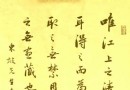 唯江上之清
耳得之而為
取之無禁用
之無盡藏也
東坡先生